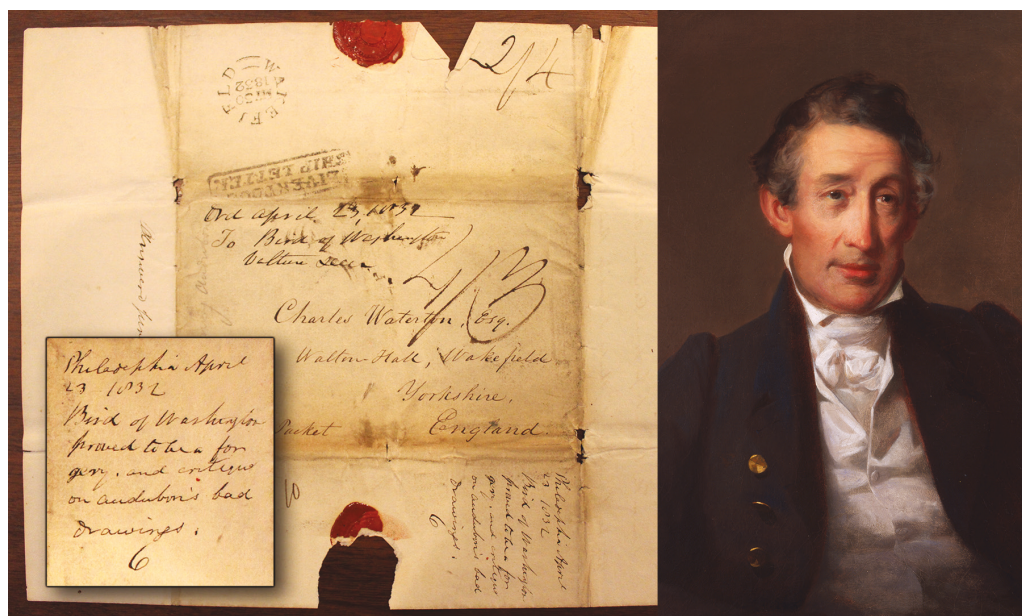 2/4
WAKEFIELD
1832
LIVERPOOL
SHIP LETTER
Ord april 23, 1832
To Bird of Washington
Vulture
Charles Waterton, Esq.
Walton Hall, Wakefield
Yorkshire,
England.
Packet
Answered
Philadelphia April
23 1832
Bird of Washington
proved to be a for
gery, and critique
on audubon's bad
drawings.
6
Philadelphia April
23 1832
Bird of Washington
proved to be a for
gery, and critique
on audubon's bad
drawings.
6